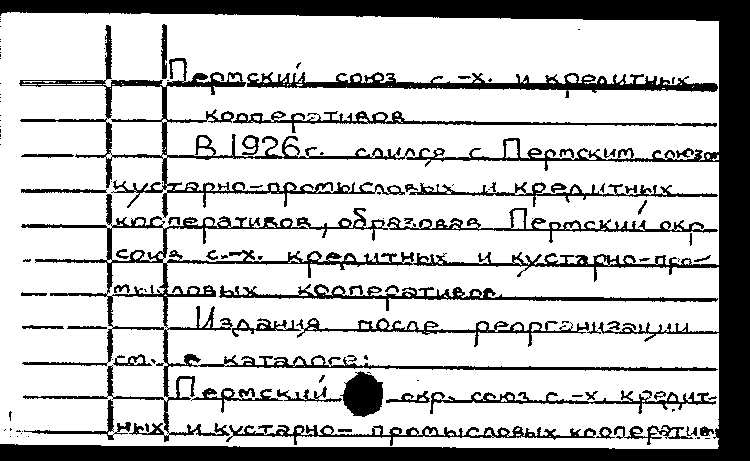 Пермский союз с.-х. и кредитных
кооперативов
В 1926г. слился с Пермским союзом
кустарно-промысловых и кредитных
кооперативов, образовав Пермский окр.
союз с.-х. кредитных и кустарно-про-
мысловых кооперативов.
Издания после реорганизации
см. в каталоге:
Пермский окр. союз с.-х. кредит-
ных и кустарно-промысловых кооператив